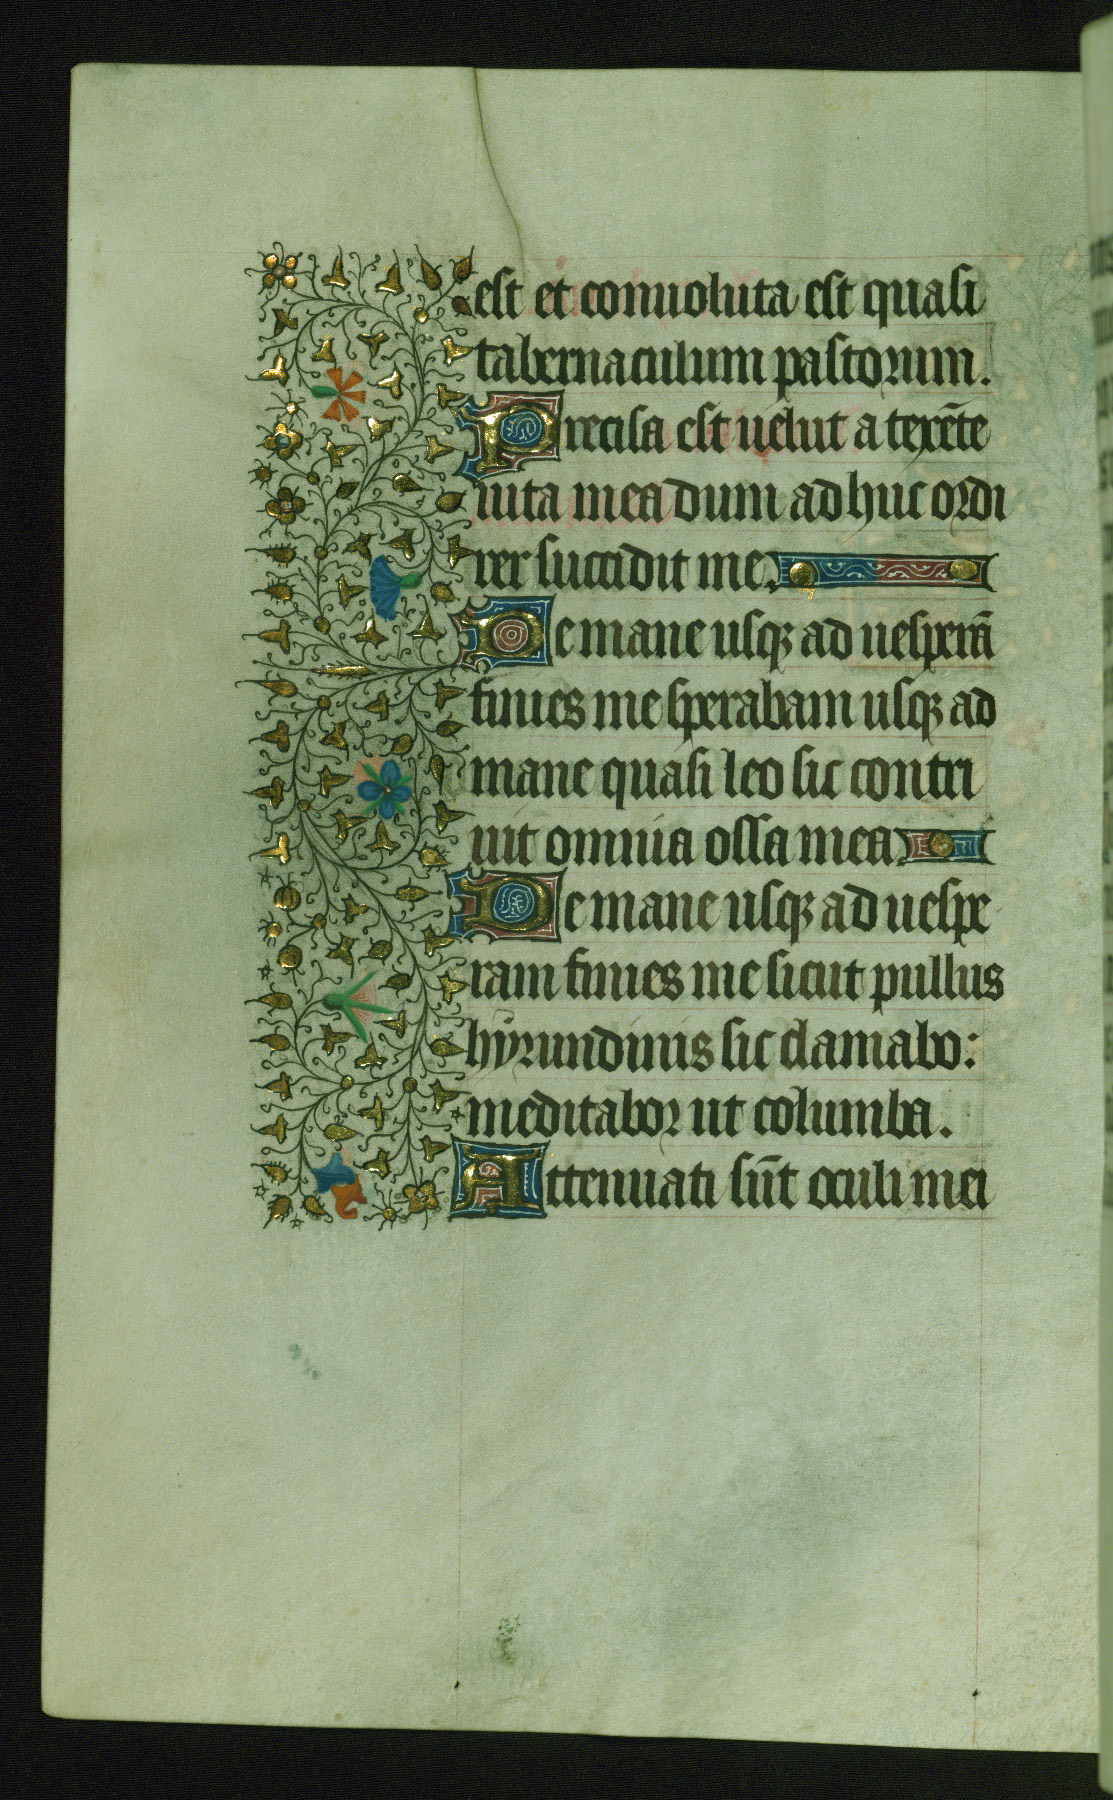 est et conuoluta est quasi
tabernaculum pastorum.
Precisa est uelut a texẽte
uita mea dum adhuc ordi
rer succidit me.
De mane usqꝫ ad uesperã
finies me sperabam usqꝫ ad
mane quasi leo sic contri
uit omnia ossa mea
De mane usqꝫ ad uespe
ram finies me sicut pullus
hyrundinis sic clamabo:
meditabor ut columba.
Attenuati sũt oculi mei